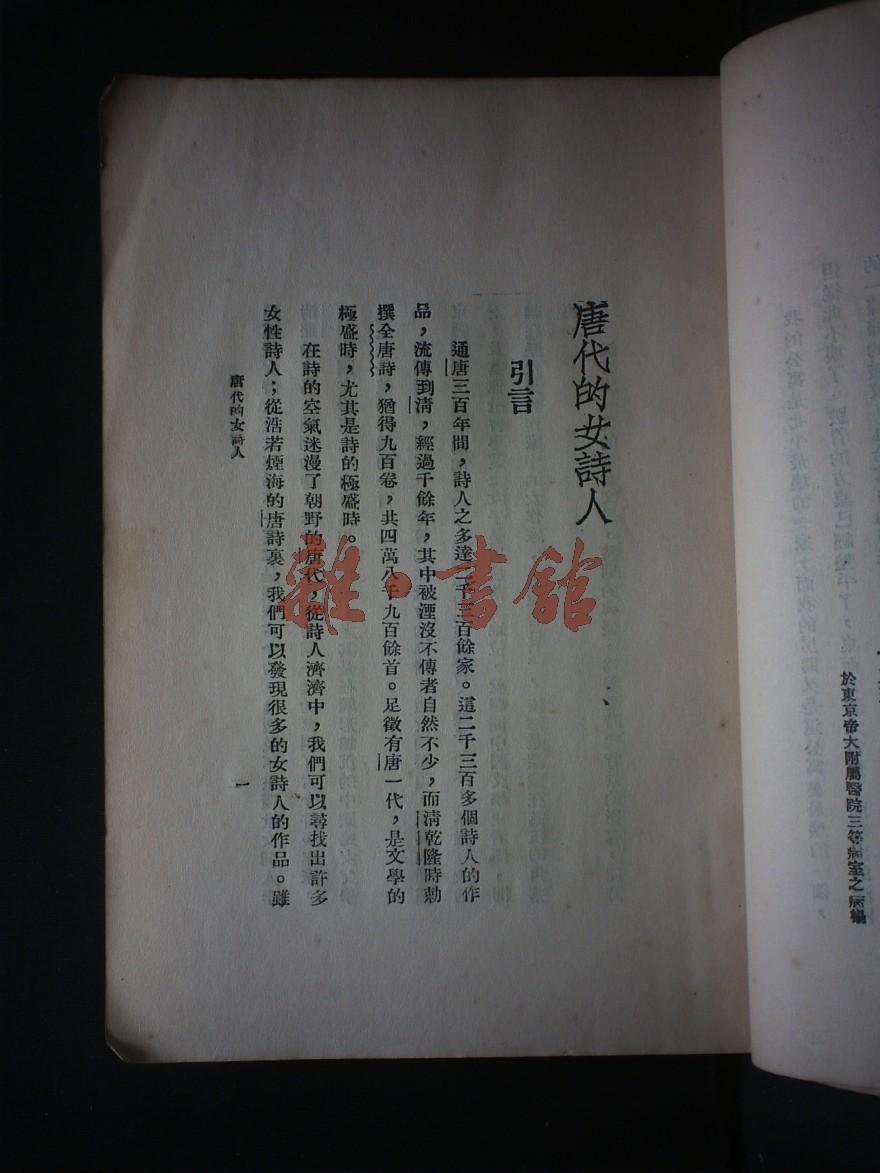 於東京帝大附屬醫院三等病室之病榻
唐代的女詩人
引言
通唐三百年間，詩人之多達二千三百餘家。這二千三百多個詩人的作
品，流傳到清，經過千餘年，其中被湮沒不傳者自然不少，而清乾隆時勅
撰全唐詩，猶得九百卷，共四萬八千九百餘首。足徵有唐一代，是文學的
極盛時，尤其是詩的極盛時。
在詩的空氣迷漫了朝野的唐代，從詩人濟濟中，我們可以尋找出許多
女性詩人；從浩若煙海的唐詩裏，我們可以發現很多的女詩人的作品。雖
唐代的女詩人
一
雜·書館